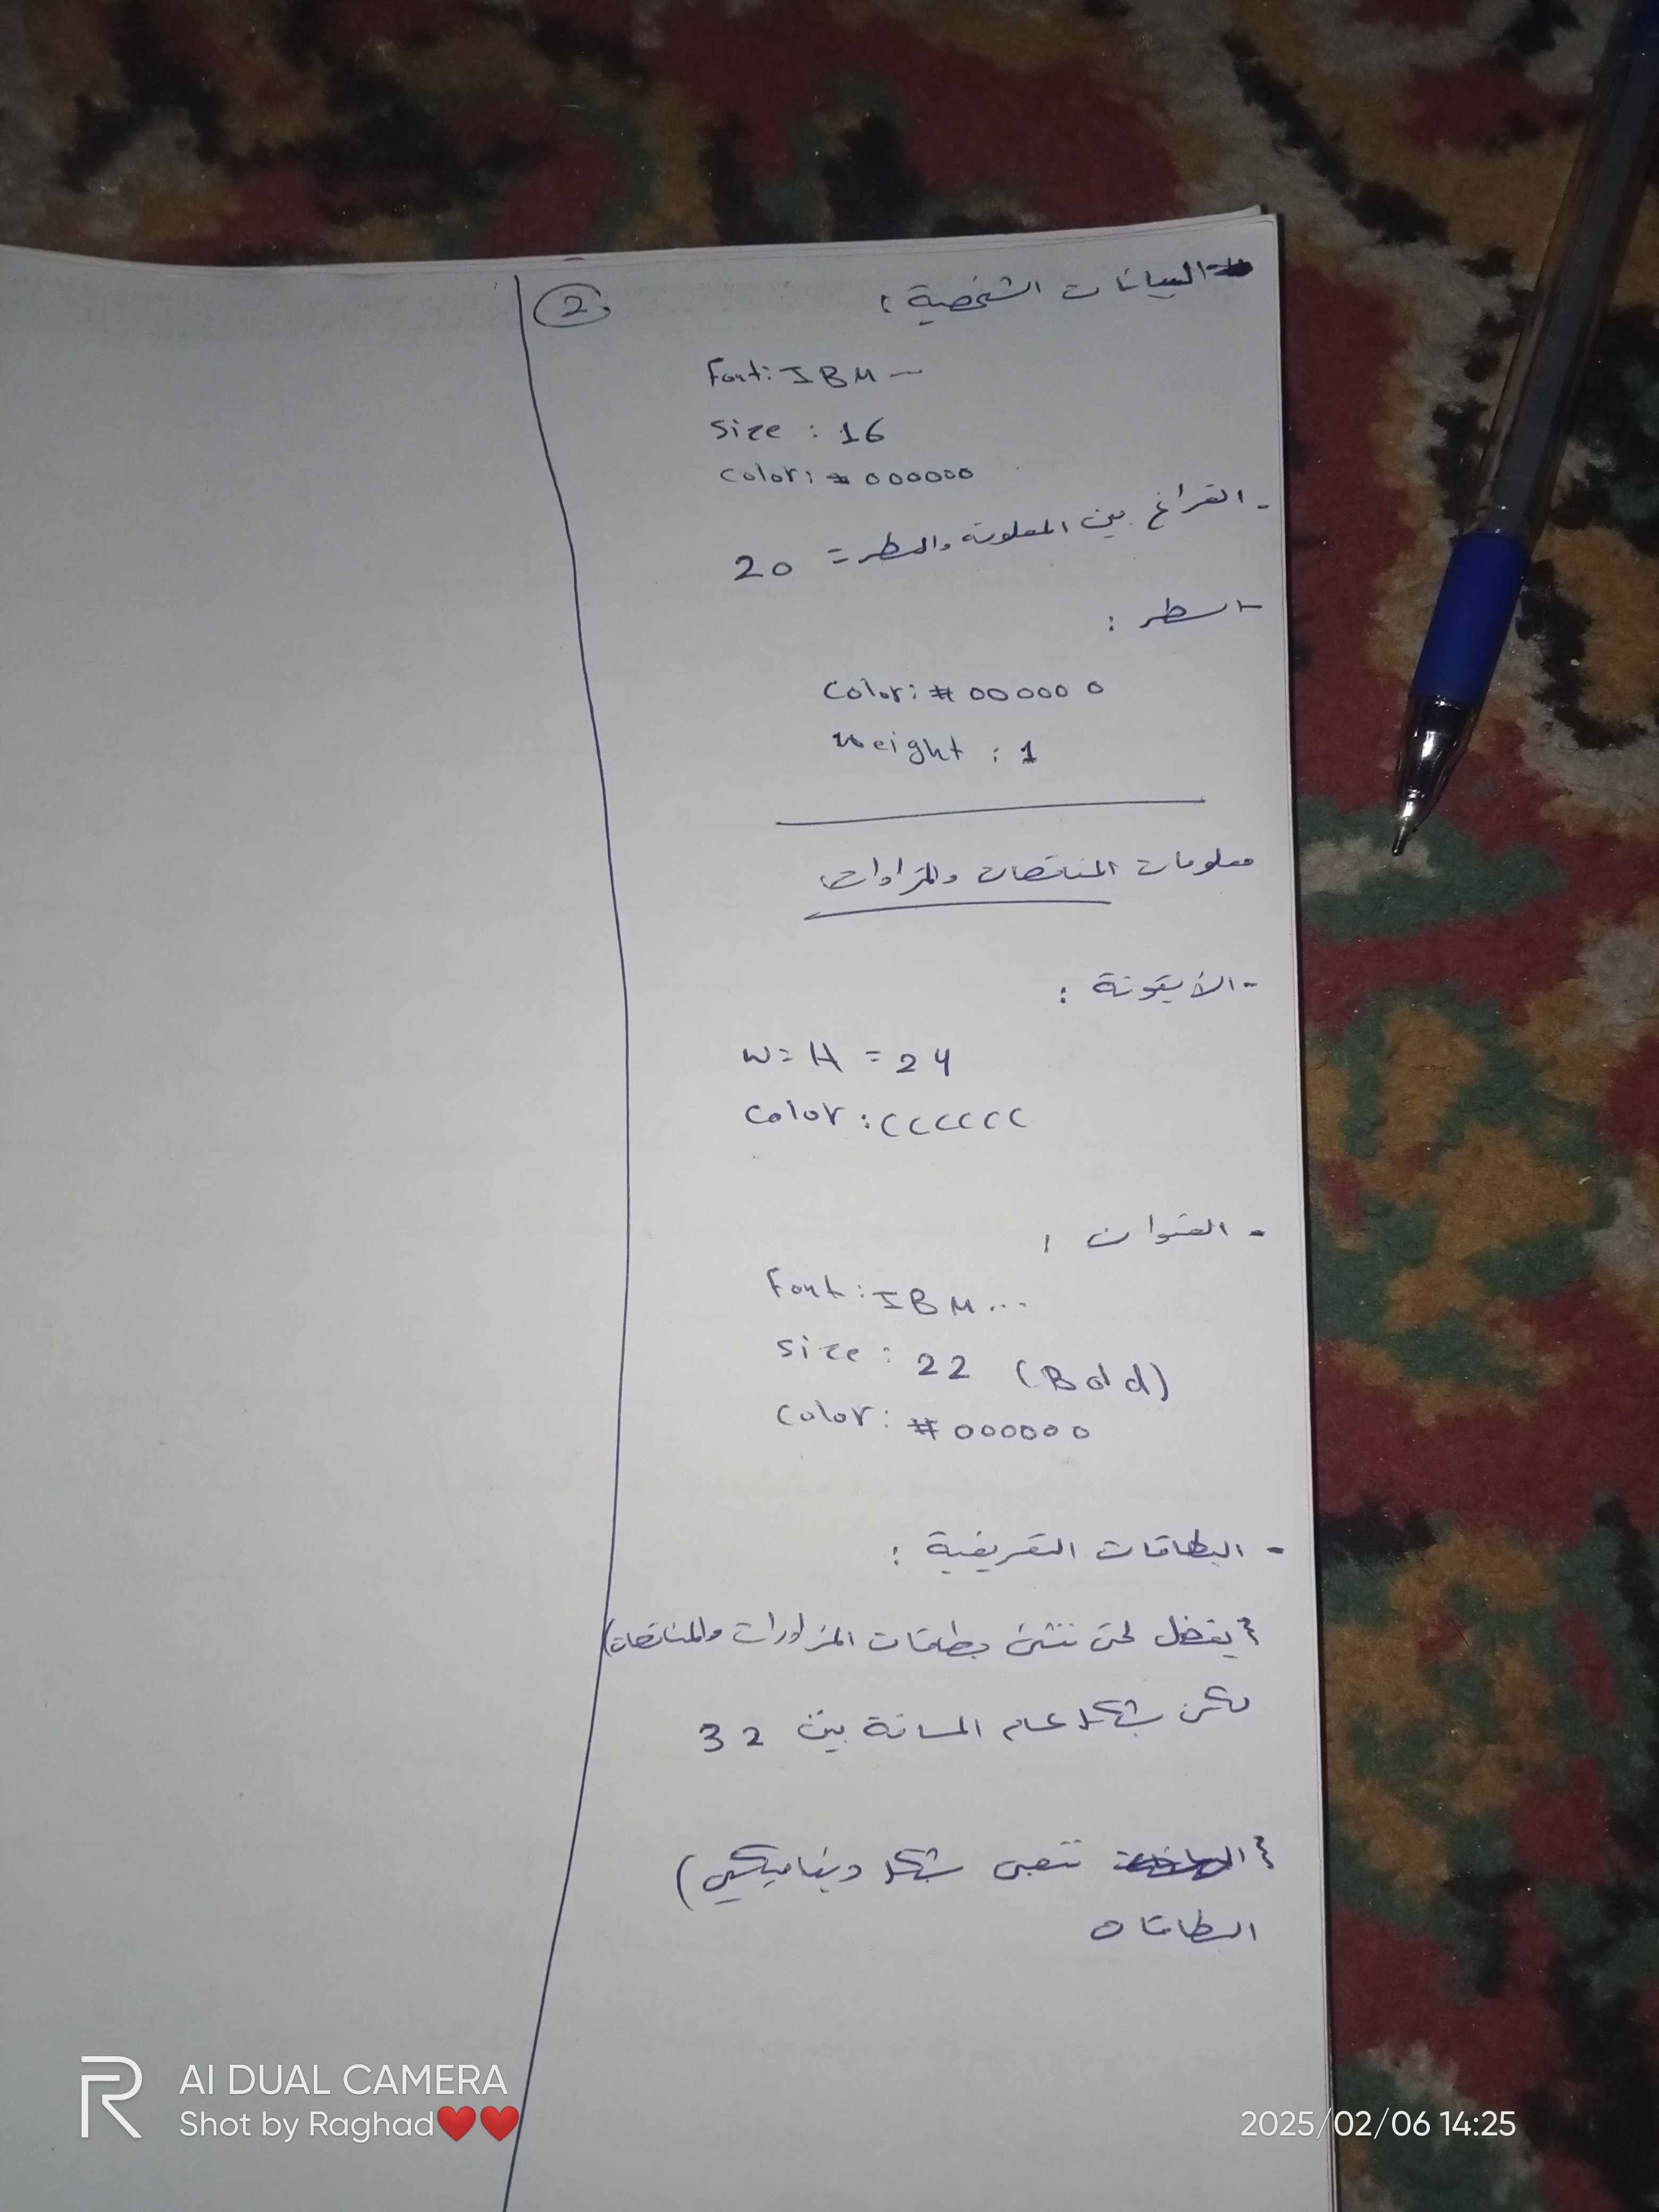 البيانات الشخصية :
2
Font: IBM —
Size : 16
Color: # 000000
- الفراغ بين المعلومة والسطر = 20
- السطر :
Color: # 000000
Weight : 1
معلومات المناقصات والمزاودات
- الأيقونة :
W = H = 24
Color : CCCCCC
- العنوان :
Font : IBM ...
Size : 22 (Bold)
Color : # 000000
- البطاقات التعريفية :
{ يفضل لحتى ننشئ بطاقات المزاودات والمناقصات)
لكن بشكل عام المسافة بين 32
{ تتعبى بشكل ديناميكي)
البطاقات
AI DUAL CAMERA
Shot by Raghad❤️❤️
2025/02/06 14:25